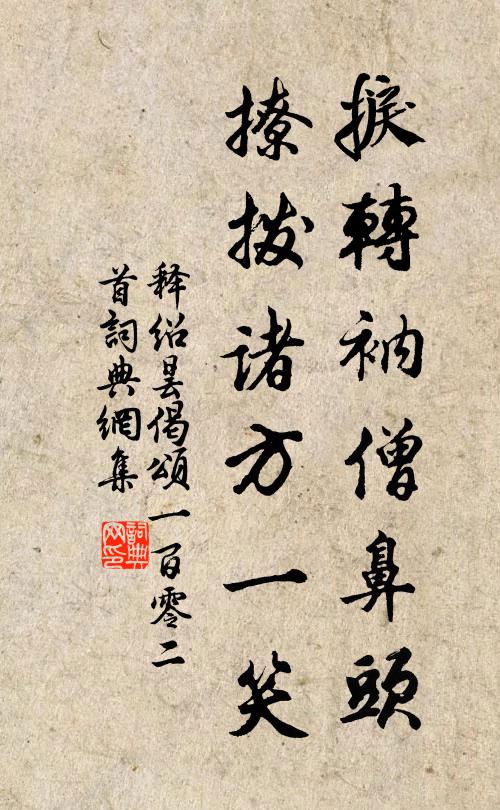 捩轉衲僧鼻頭
撩拨諸方一笑
释绍昙偈頌一百零二
首詞典網集
詞典网印